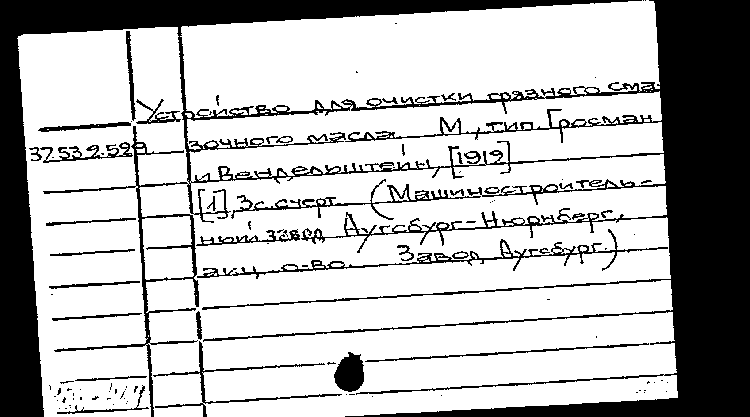 Устройство для очистки грязного сма-
37.53.2.529. зочного масла. М., тип. Гросман
и Вендельштейн, [1912].
[1], 3 с. с черт. (Машиностроитель-
ный завод Аугсбург-Нюрнберг,
акц. о-во. Завод Аугсбург.)